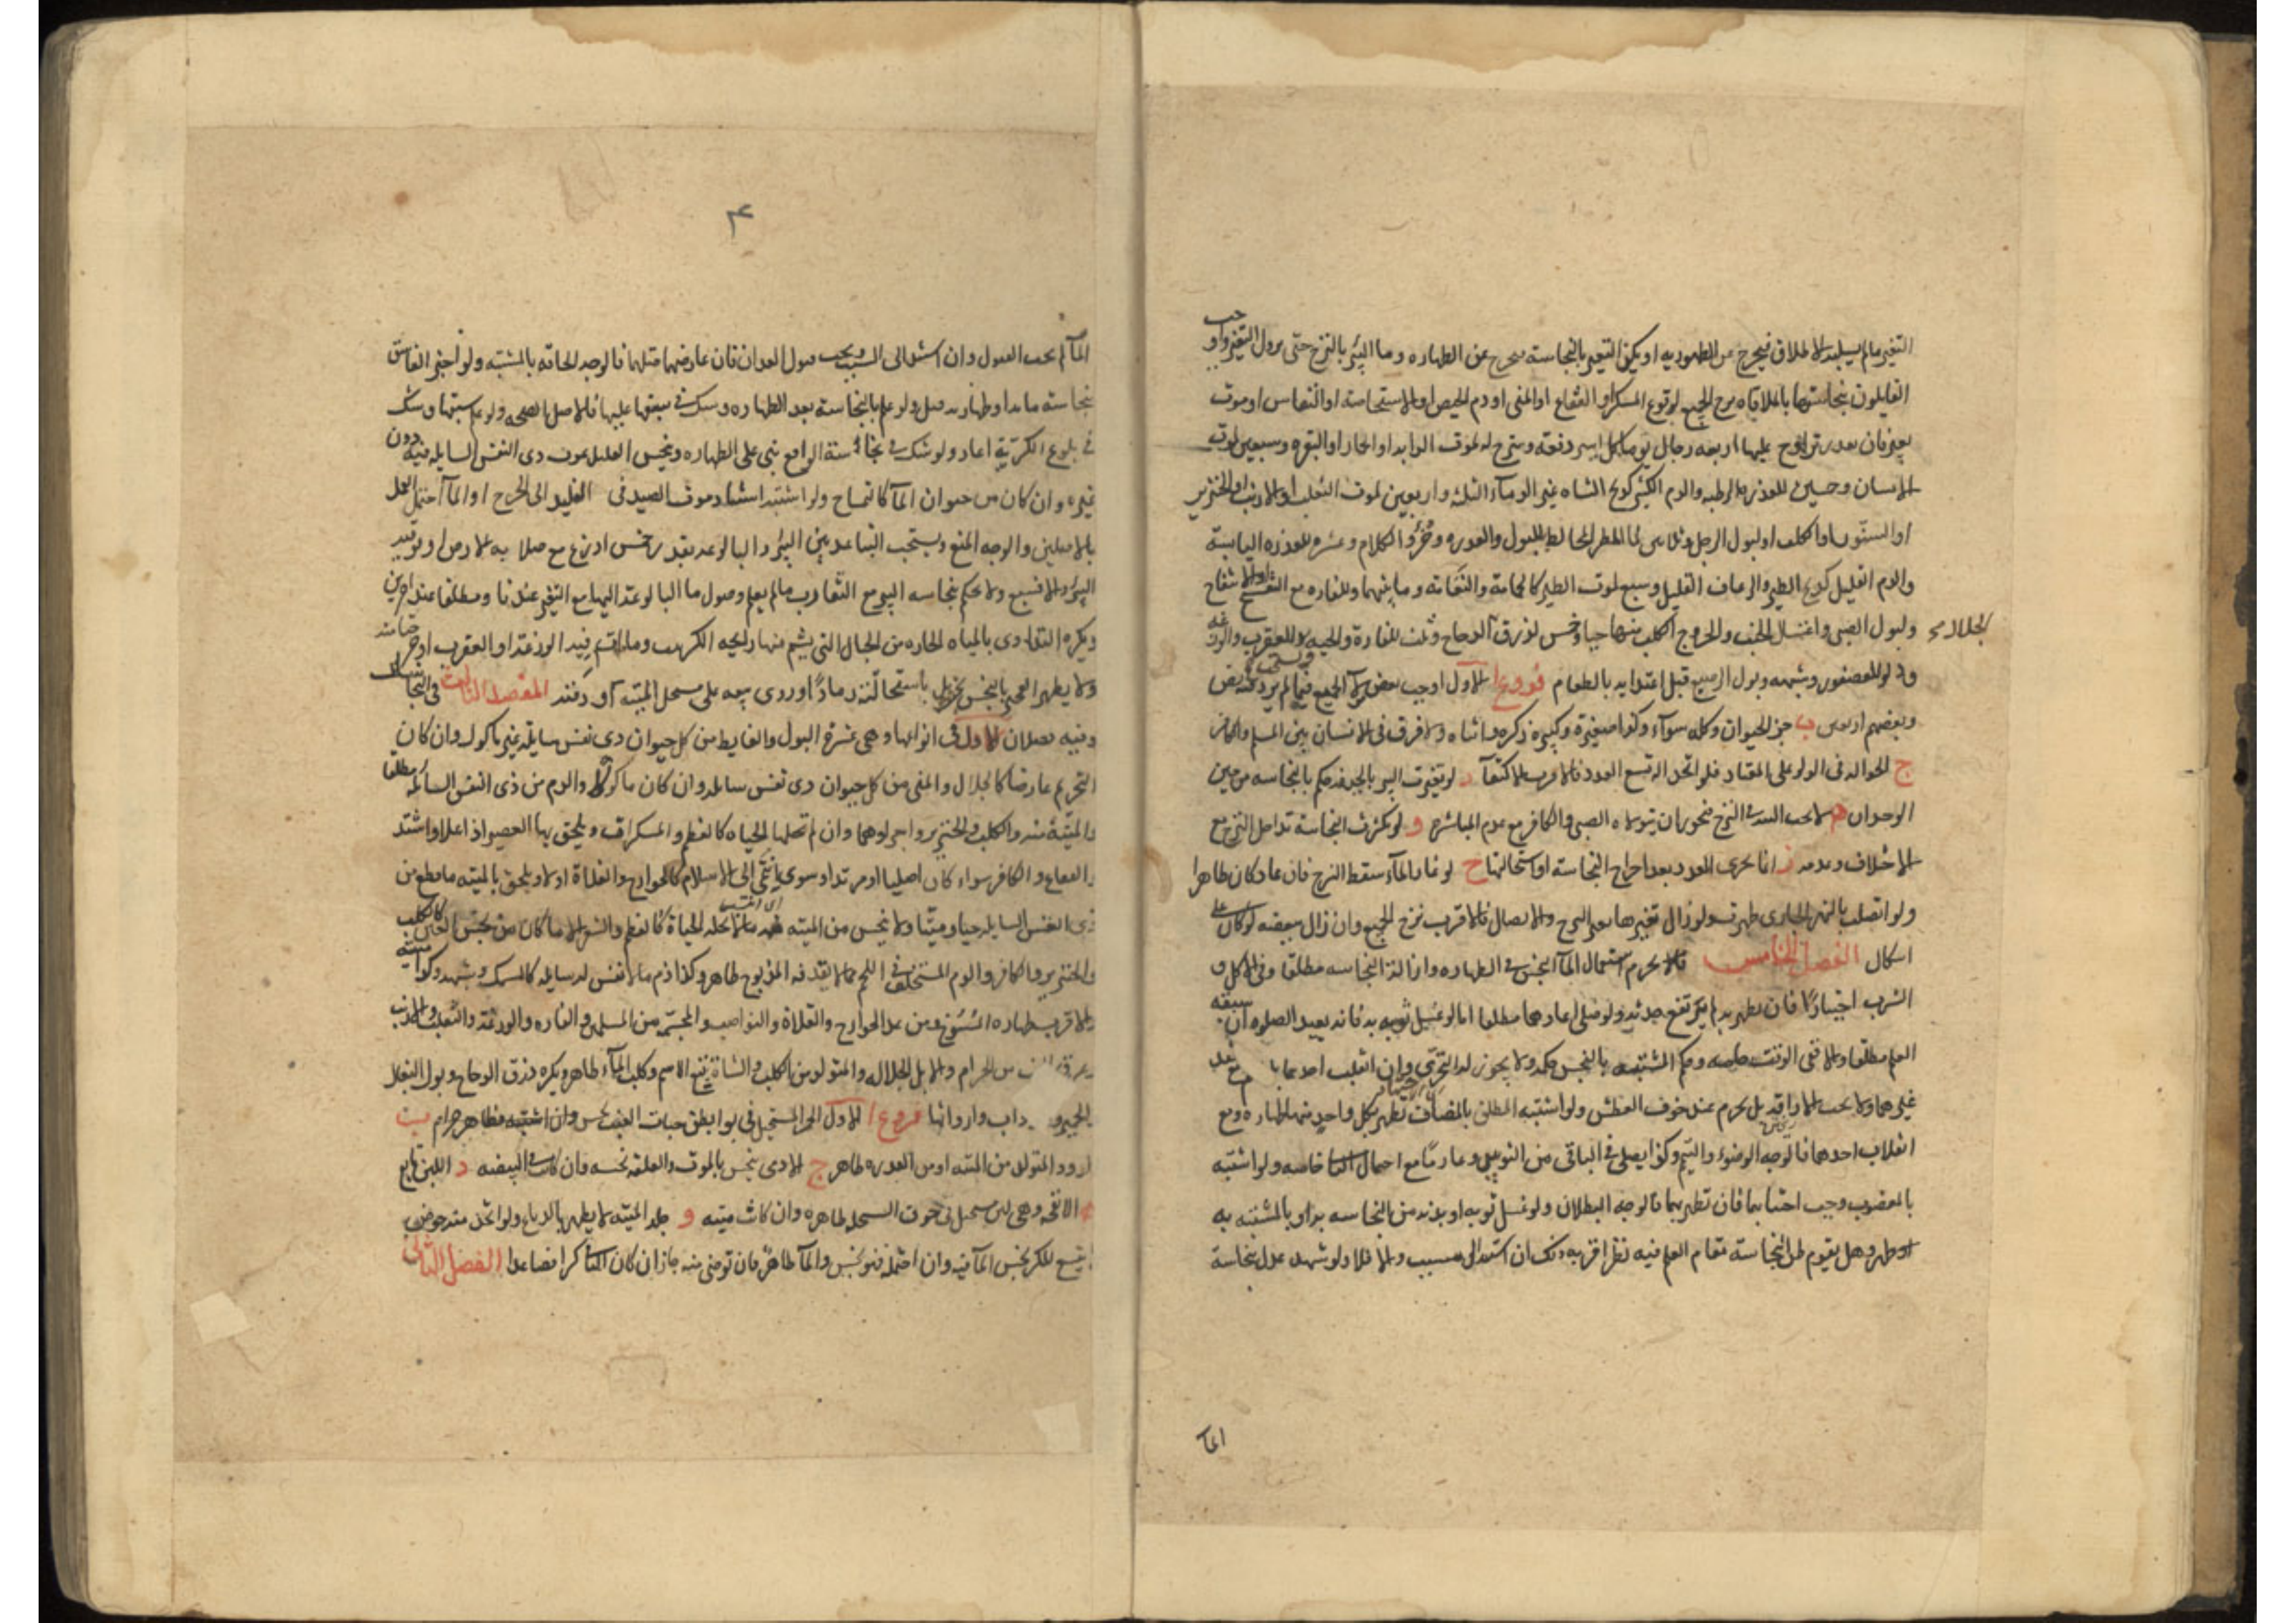 التغير مالم يسلبه الاطلاق فيخرج عن الطهورية او يكن التغير بالنجاسة فيخرج عن الطهارة وماء البئر بالنزح حتى يزول التغير واوجب
القايلون بنجاستها بالملاقاة نزح الجميع لوقوع المسكر او الفقاع او المني او دم الحيض او الاستحاضة او النفاس او موت
بعير فان تعذر تراوح عليها اربعة رجال يوما كل اثنين دفعة ونزح كر لموت الدابة او الحمار او البقرة وسبعين لموت
الانسان وخمسين للعذرة الرطبة والدم الكثير كذبح الشاة غير الدماء الثلثة واربعين لموت الثعلب او الارنب او الخنزير
او السنور او الكلب او لبول الرجل وثلاثين لماء المطر المخالط للبول والعذرة وخرؤ الكلاب وعشرة للعذرة اليابسة
والدم القليل كذبح الطير والرعاف القليل وسبع لموت الطير كالحمامة والنعامة وما بينهما وللفارة مع التفسخ او الانتفاخ
ولبول الصبي واغتسال الجنب ولخروج الكلب منها حيا وخمس لذرق الدجاج وثلث للفارة والحية وللعقرب والوزغة
الجلال
ودلو للعصفور وشبهه وبول الرضيع قبل اغتذايه بالطعام فروع الاول اوجب بعض هؤلاء الجميع فيما لم يرد فيه نص
وبعضهم اربعين ب جزء الحيوان وكله سواء وكذا صغيره وكبيره ذكره وانثاه ولا فرق في الانسان بين المسلم والكافر
ج الحوالة في الدلو على المعتاد فلو اتخذ الة تسع العدد فالاقرب الاكتفاء د لو تغيرت البئر بالجيفة حكم بالنجاسة من حين
الوجدان ه لا يجب النية في النزح فيجوز ان يتولاه الصبي والكافر مع عدم المباشرة و لو تكثرت النجاسة تداخل النزح مع
الاختلاف وعدمه ز انما يجزى العدد بعد اخراج النجاسة او استحالتها ح لو غار الماء سقط النزح فان عاد كان طاهرا
ولو اتصلت بالنهر الجاري طهرت ولو زال تغيرها بغير النزح والاتصال فالاقرب نزح الجميع وان زال ببعضه لو كان على
اشكال الفصل الخامس يحرم استعمال الماء النجس في الطهارة وازالة النجاسة مطلقا وفي الاكل و
الشرب اختيارا فان تطهر به لم يرتفع حدثه ولو صلى اعادهما مطلقا اما لو غسل ثوبه به فانه يعيد الصلوة ان سبقه
العلم مطلقا والا ففي الوقت خاصة وحكم المشتبه بالنجس حكمه ولا يجوز له التحري وان انقلب احدهما بل
غيرهما ولا يجب الاراقة بل يحرم عند خوف العطش ولو اشتبه المطلق بالمضاف تطهر بكل واحد منهما طهارة ومع
انقلاب احدهما فالوجه الوضوء والتيمم وكذا يصلي في الباقي من الثوبين وعاريا مع احتمال الثاني خاصة ولو اشتبه
بالمغصوب وجب اجتنابهما فان تطهر بهما فالوجه البطلان ولو غسل ثوبه او بدنه من النجاسة به او بالمشتبه به
طهر وهل يقوم ظن النجاسة مقام العلم فيه نظر اقربه ذلك ان استند الى سبب والا فلا ولو شهد عدل بنجاسة
الما
٣
الماء لم يجب القبول وان استند الى السبب ويجب قبول العدلين فان عارضهما مثلهما فالوجه الحاقه بالمشتبه ولو اخبر الفاسق
بنجاسة مائه او طهارته قبل ولو علم بالنجاسة بعد الطهارة وشك في سبقها عليها فالاصل الصحة ولو علم سبقها وشك
في بلوغ الكرية اعاد ولو شك في نجاسة الواقع بنى على الطهارة وينجس القليل بموت ذي النفس السايلة فيه دون
غيره وان كان من حيوان الماء كالتمساح ولو اشتبه استناد موت الصيد في القليل الى الجرح او الماء احتمل العمل
بالاصلين والوجه المنع ويستحب التباعد بين البئر والبالوعة بقدر خمس اذرع مع صلابة الارض او فوقية
البئر والا فسبع ولا يحكم بنجاسة البئر مع التقارب مالم يعلم وصول ماء البالوعة اليها مع التغير عندنا ومطلقا عند اخرين
ويكره التداوي بالمياه الحارة من الجبال التي يشم منها رايحة الكبريت وما مات فيه الوزغة او العقرب او خرجتا منه
ولا يطهر العجين بالنجس بخبزه بل باستحالته رمادا وروي بيعه على مستحل الميتة او دفنه المقصد الثالث في النجاسات
وفيه فصلان الاول في انواعها وهي عشرة البول والغايط من كل حيوان ذي نفس سايلة غير ماكول وان كان
التحريم عارضا كالجلال والمني من كل حيوان ذي نفس سايلة وان كان ماكولا والدم من ذي النفس السائلة مطلقا
والميتة منه والكلب والخنزير واجزاوهما وان لم تحلها الحياة كالعظم والمسكرات ويلحق بها العصير اذا غلا واشتد
والفقاع والكافر سواء كان اصليا او مرتدا وسواء انتمى الى الاسلام كالخوارج والغلاة او لا ويلحق بالميتة ما قطع من
ذي النفس السايلة حيا وميتا ولا ينجس من الميتة ما لا تحله الحياة كالعظم والشعر الا ما كان من نجس العين كالكلب
والخنزير والكافر والدم المتخلف في اللحم مما لا يقذفه المذبوح طاهر وكذا دم ما لا نفس له سايلة كالسمك وشبهه وكذا ميتته
والاقرب طهارة المسوخ ومن عدا الخوارج والغلاة والنواصب والمجسمة من المسلمين والفارة والوزغة والثعلب والارنب
وعرق الجنب من الحرام والابل الجلالة والمتولد من الكلب والشاة يتبع الاسم وكلب الماء طاهر ويكره ذرق الدجاج وبول البغال
والحمير والدواب واروائها فروع الاول الخمر المستحيل في بواطن حبات العنب نجس وان اشتبه فطاهر حرام ب
الدود المتولد من الميتة او من العذرة طاهر ج الادمي ينجس بالموت والعلقة نجسة وان كانت في البيضة د اللبن تابع
ه الانفحة وهي لبن مستحيل في جوف السخلة طاهرة وان كانت ميتة و جلد الميتة لا يطهر بالدباغ ولو اتخذ منه حوض
يتسع للكر نجس الماء فيه وان احتمله فهو نجس والماء طاهر فان توضى منه جاز ان كان الباقي كرا فصاعدا الفصل الثاني